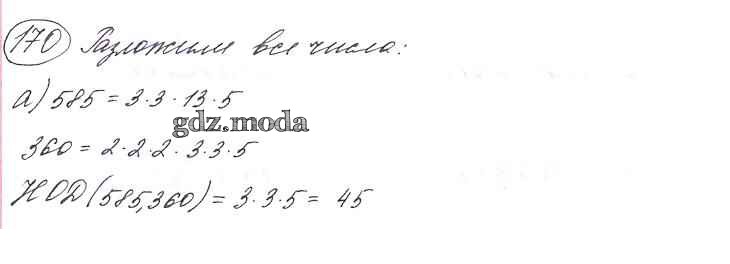 170 Разложим все числа:
а) 585 = 3·3·13·5
gdz.moda
360 = 2·2·2·3·3·5
НОД(585,360) = 3·3·5 = 45